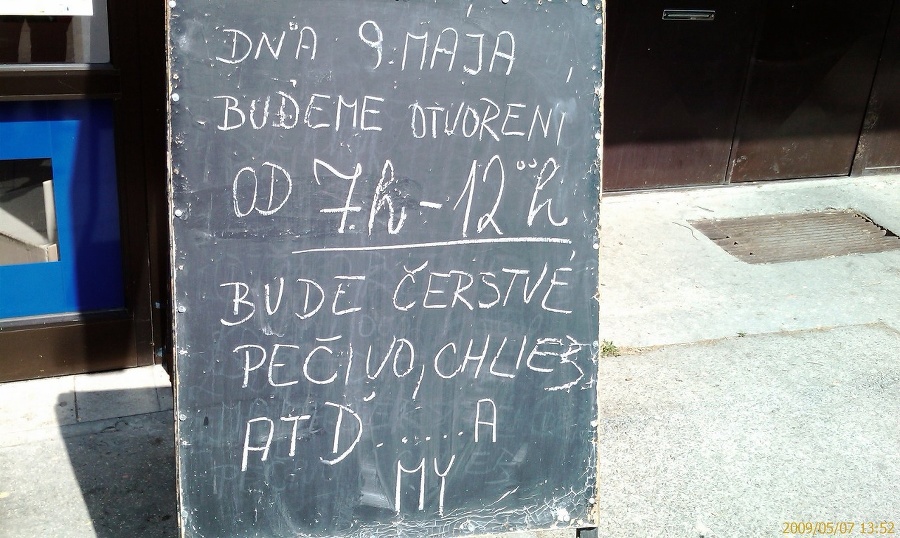 DŇA 9. MÁJA
BUDEME OTVORENÍ
OD 7.h - 12°°h
BUDE ČERSTVÉ
PEČIVO, CHLIEB,
ATĎ......A
MY
2009/05/07 13:52